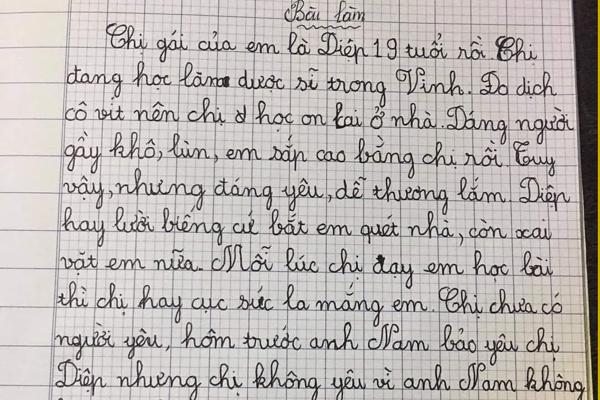 Bài làm
Chị gái của em là Diệp 19 tuổi rồi. Chị
đang học làm dược sĩ trong Vinh. Do dịch
cô vit nên chị ở học on lai ở nhà. Dáng người
gầy khô, lùn, em sắp cao bằng chị rồi. Tuy
vậy, nhưng đáng yêu, dễ thương lắm. Diệp
hay lười biếng cứ bắt em quét nhà, còn xai
vặt em nữa. Mỗi lúc chị dạy em học bài
thì chị hay cục súc la mắng em. Chị chưa có
người yêu, hôm trước anh Nam bảo yêu chị
Diệp nhưng chị không yêu vì anh Nam không